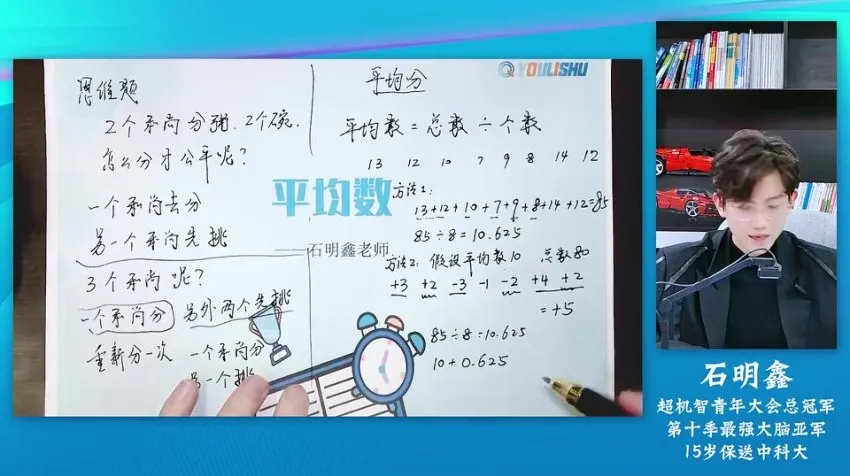 思维题
2个和尚分粥.2个碗.
怎么分才公平呢?
一个和尚去分
另一个和尚先挑
3个和尚呢?
一个和尚分 另外两个先挑
重新分一次 一个和尚分
另一个挑
YOULISHU
平均分
平均数=总数÷个数
13 12 10 7 9 8 14 12
方法1:
13+12+10+7+9+8+14+12=85
85÷8=10.625
方法2: 假设平均数10 总数80
+3 +2 -3 -1 -2 +4 +2
=+5
85÷8=10.625
10+0.625
平均数
——石明鑫老师
石明鑫
超机智青年大会总冠军
第十季最强大脑亚军
15岁保送中科大